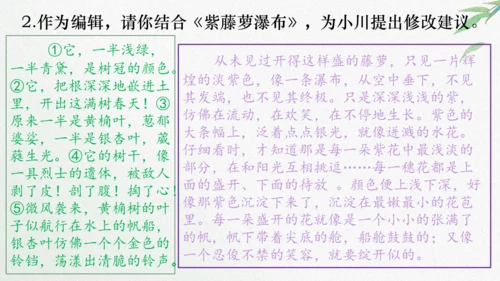 2.作为编辑，请你结合《紫藤萝瀑布》，为小川提出修改建议。
①它，一半浅绿，
一半青黛，是树冠的颜色。
②它，把根深深地嵌进土
里，开出这满树春天！③
原来一半是黄桷叶，葱郁
婆娑，一半是银杏叶，葳
蕤生光。④它的树干，像
一具烈士的遗体，被敌人
剥了皮！剖了腹！掏了心！
⑤微风袭来，黄桷树的叶
子似航行在水上的帆船，
银杏叶仿佛一个个金色的
铃铛，荡漾出清脆的铃声。
从未见过开得这样盛的藤萝，只见一片辉
煌的淡紫色，像一条瀑布，从空中垂下，不见
其发端，也不见其终极。只是深深浅浅的紫，
仿佛在流动，在欢笑，在不停地生长。紫色的
大条幅上，泛着点点银光，就像迸溅的水花。
仔细看时，才知道那是每一朵紫花中最浅淡的
部分，在和阳光互相挑逗⋯⋯每一穗花都是上
面的盛开、下面的待放 。颜色便上浅下深，好
像那紫色沉淀下来了，沉淀在最嫩最小的花苞
里。每一朵盛开的花就像是一个小小的张满了
的帆，帆下带着尖底的舱，船舱鼓鼓的；又像
一个忍俊不禁的笑容，就要绽开似的。